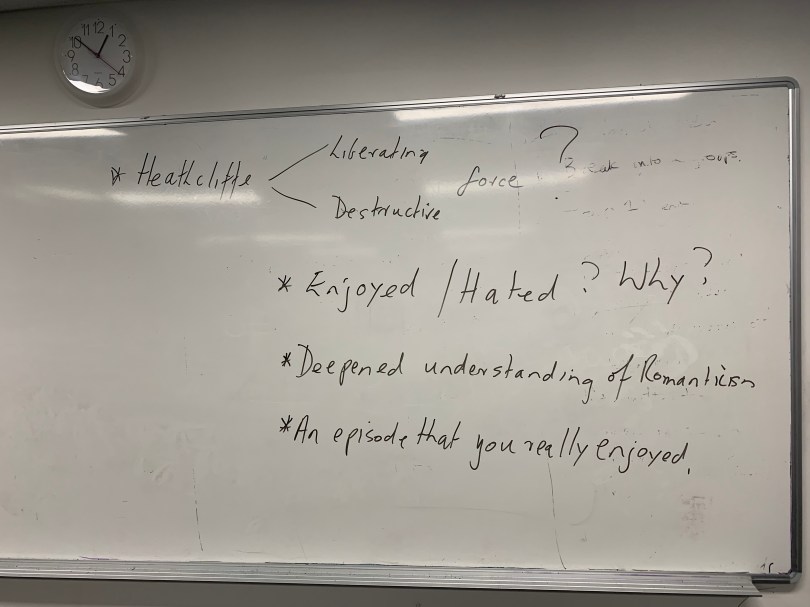 11 12 1
10 2
9 3
8 4
7 6 5
* Heathcliffe
Liberating
Destructive
force ?
into
* Enjoyed / Hated ? Why ?
* Deepened understanding of Romanticism
* An episode that you really enjoyed.